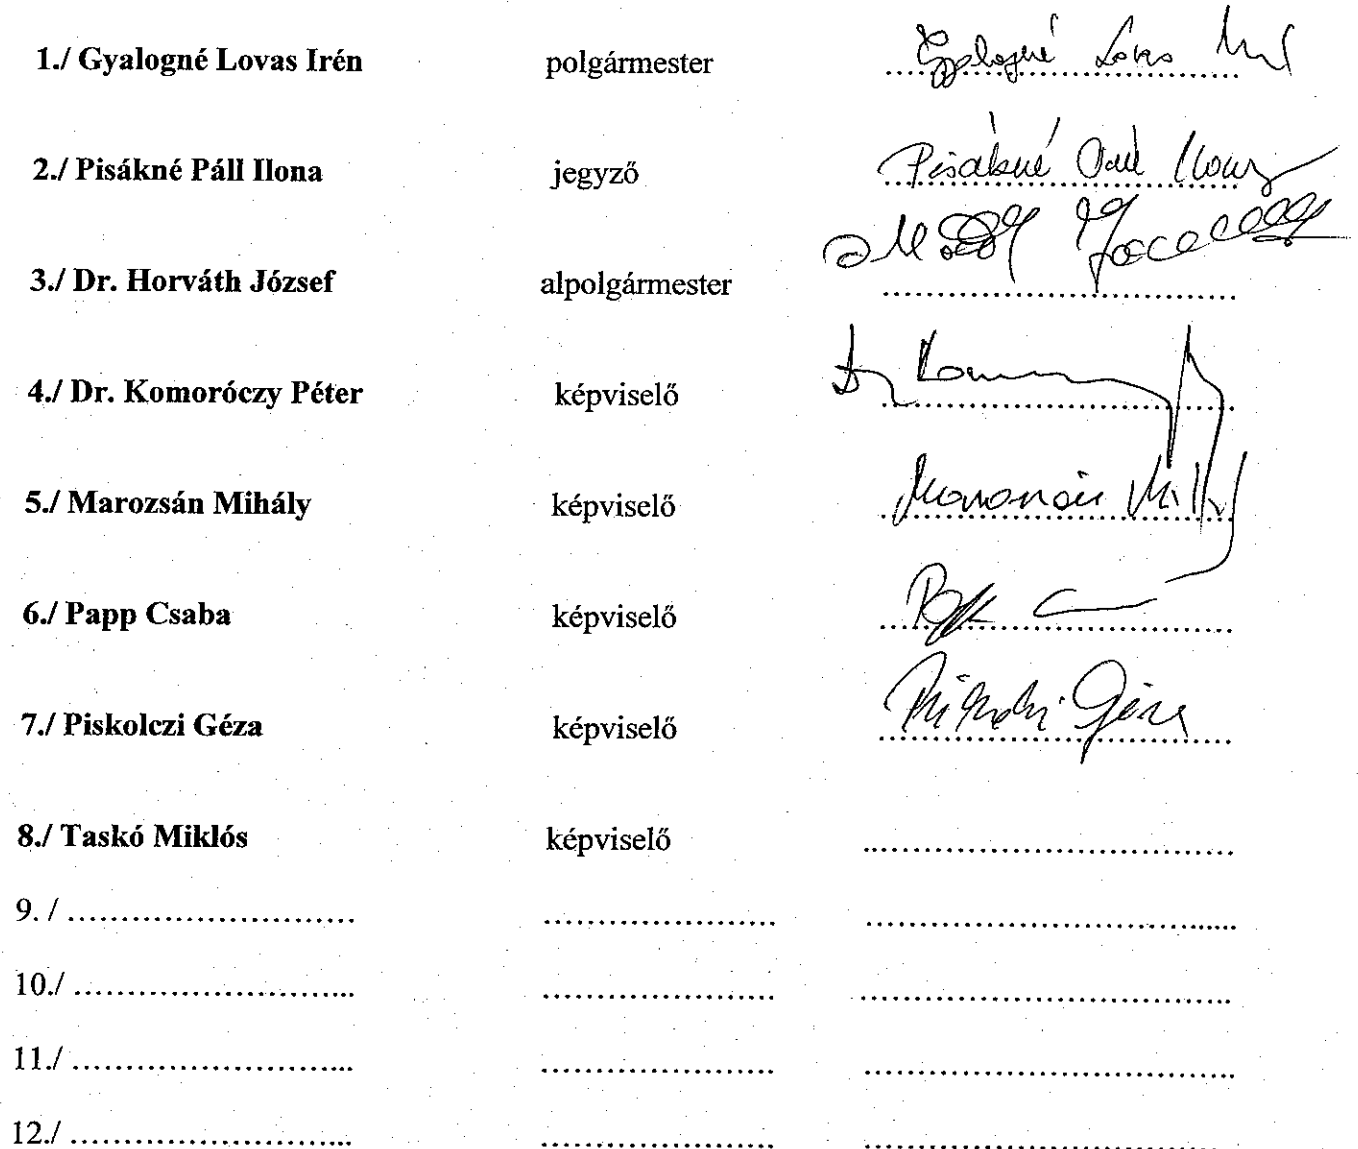 1./ Gyalogné Lovas Irén polgármester Gyalogné Lovas Irén
2./ Pisákné Páll Ilona jegyző Pisákné Páll Ilona
3./ Dr. Horváth József alpolgármester
4./ Dr. Komoróczy Péter képviselő Dr
5./ Marozsán Mihály képviselő Marozsán Mihály
6./ Papp Csaba képviselő Papp
7./ Piskolczi Géza képviselő Piskolczi Géza
8./ Taskó Miklós képviselő ....................................
9. / ............................ ...................... ....................................
10./ ........................... ...................... ....................................
11./ ........................... ...................... ....................................
12./ ........................... ...................... ....................................